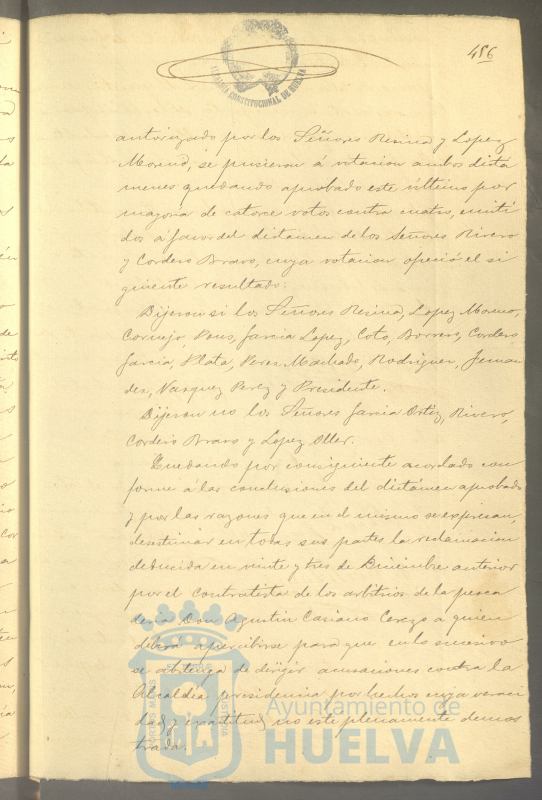 456
ALCALDIA CONSTITUCIONAL DE HUELVA
autorizado por los Señores Resina y Lopez
Moreno, se pusieron á votacion ambos dictá
menes quedando aprobado este último por
mayoria de catorce votos contra cuatro, emiti
dos á favor del dictámen de los Señores Rivero
y Cordero Bravo, cuya votacion ofreció el si
guiente resultado:
Dijeron si los Señores Resina, Lopez Moreno,
Cornejo, Pons, Garcia Lopez, Coto, Borrero, Cordero
Garcia, Plata, Perez Machado, Rodriguez, Jeman
des, Vazquez Perez y Presidente.
Dijeron no los Señores Garcia Ortiz, Rivero,
Cordero Bravo y Lopez Oller.
Quedando por consiguiente acordado con
forme á las conclusiones del dictámen aprobado
y por las razones que en el mismo se expresan,
desestimar en todas sus partes la reclamacion
deducida en veinte y tres de Diciembre anterior
por el contratista de los arbitrios de la pesca
deria Don Agustin Cariano Cerezo á quien
deberá apercibirse para que en lo sucesivo
se abstenga de dirijir acusaciones contra la
Alcaldía presidencia por hechos cuya veraci
dad y exactitud no esté plenamente demos
trada.
Ayuntamiento de
HUELVA
PORTUS MARIS
CUSTODIA